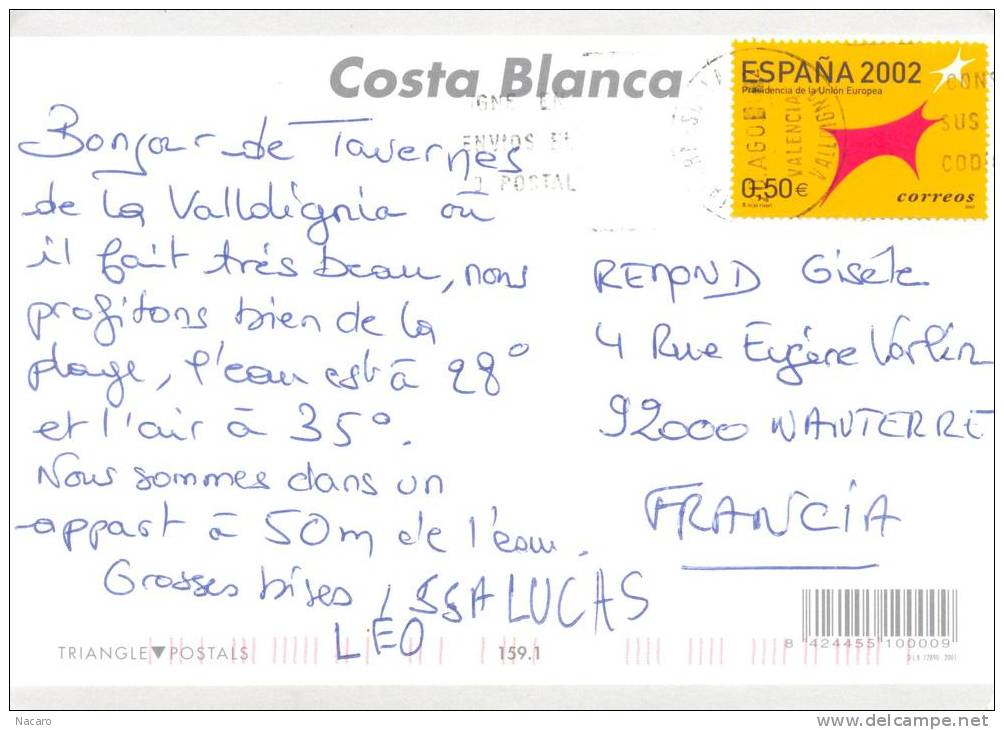 Costa Blanca
ESPAÑA 2002
Presidencia de la Unión Europea
0,50€
correos
AGO
VALENCIA
ENVIOS
POSTAL
CONS
SUS
CODI
Bonjour de Tavernes
de la Valldignia où
il fait très beau, nous
profitons bien de la
plage, l'eau est à 28°
et l'air à 35°.
Nous sommes dans un
appart à 50m de l'eau.
Grosses bises
LUCAS
LEO
REMOND Gisèle
4 Rue Eugène Varlin
92000 NANTERRE
FRANCIA
TRIANGLE▼POSTALS
159.1
8 424455 100009
Nacaro
www.delcampe.net